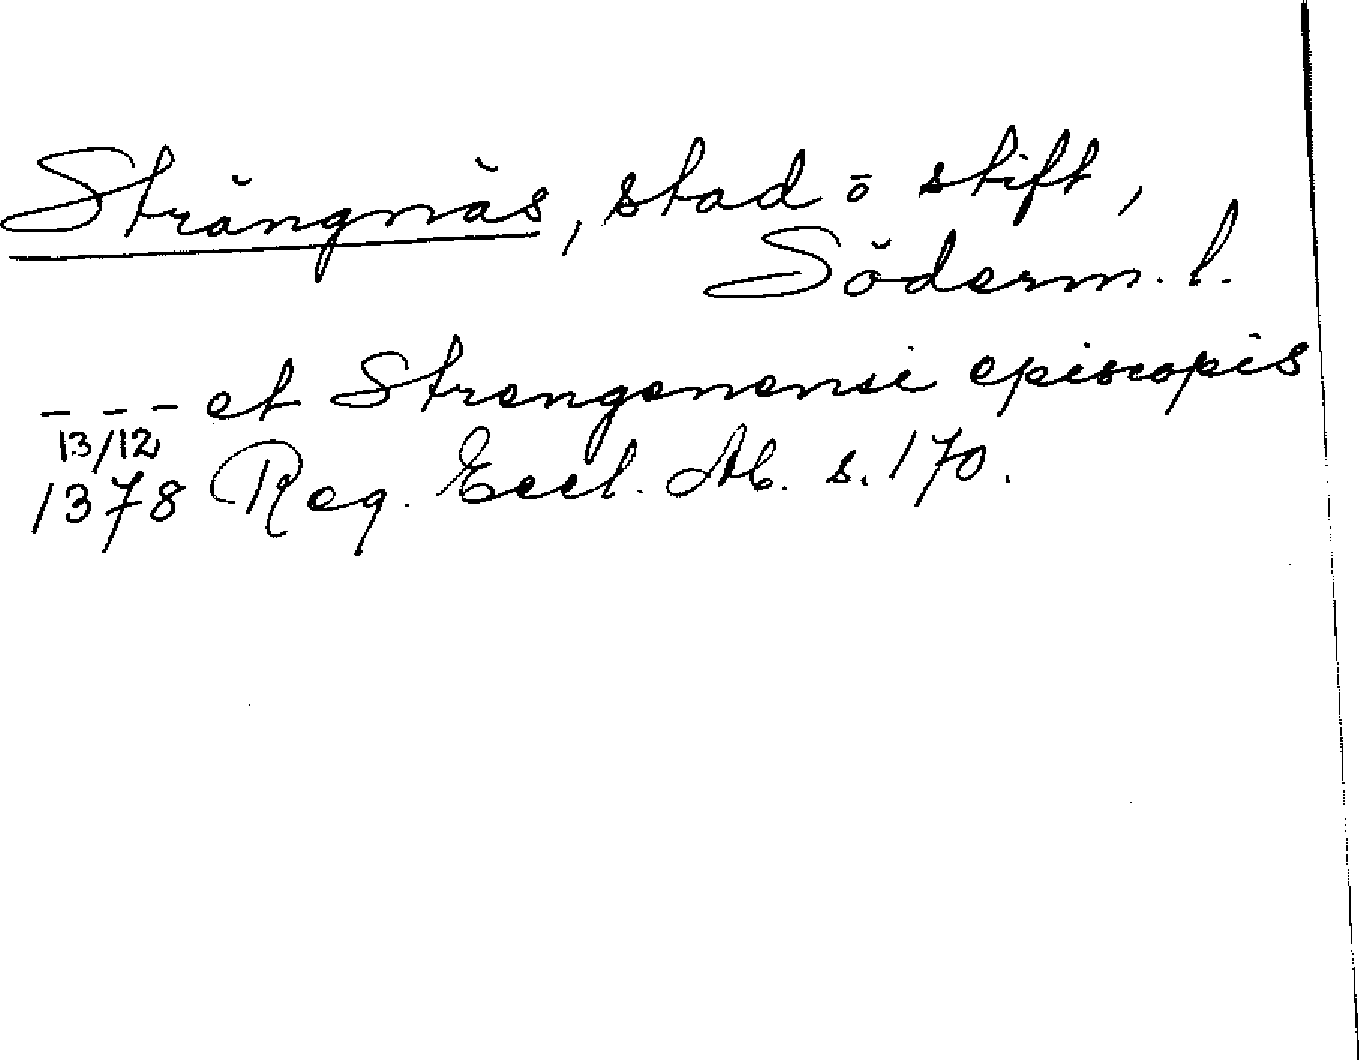 Strängnäs, stad o stift,
Söderm. l.
--- et Strengenensi episcopis
13/12
1378 Reg. Eccl. Ab. s. 170.